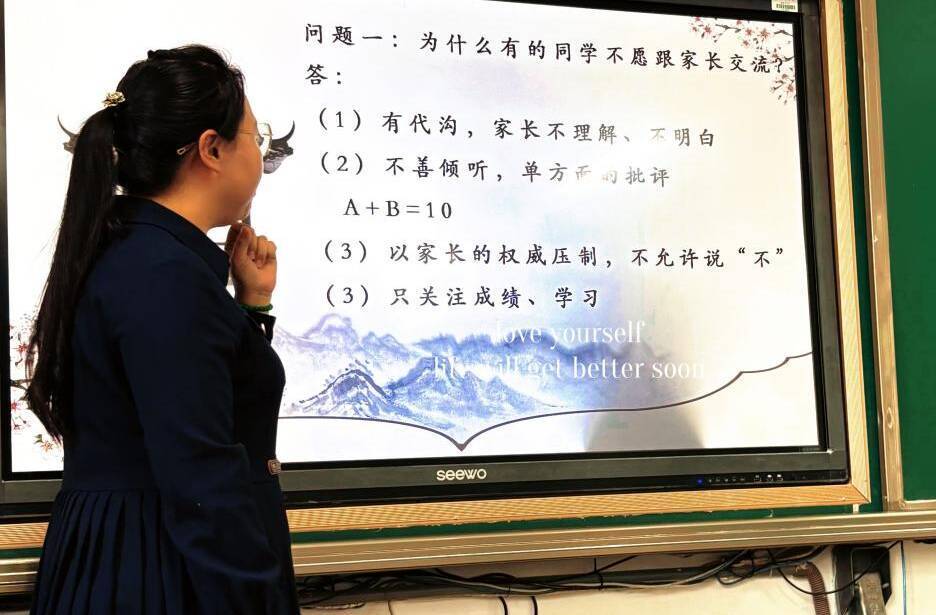 问题一：为什么有的同学不愿跟家长交流？
答：
（1）有代沟，家长不理解、不明白
（2）不善倾听，单方面的批评
A+B=10
（3）以家长的权威压制，不允许说“不”
（3）只关注成绩、学习
love yourself
life will get better soon
seewo